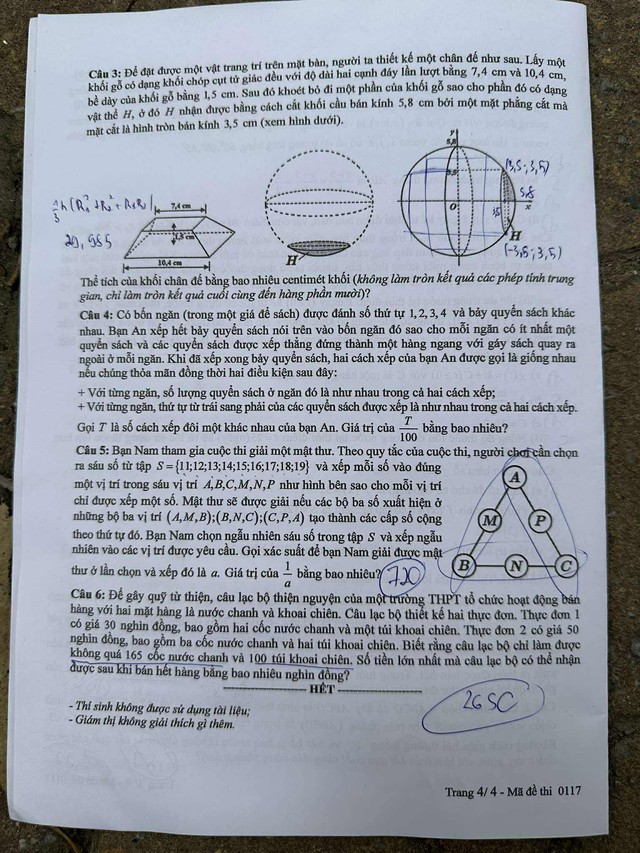 Câu 3: Để đặt được một vật trang trí trên mặt bàn, người ta thiết kế một chân đế như sau. Lấy một
khối gỗ có dạng khối chóp cụt tứ giác đều với độ dài hai cạnh đáy lần lượt bằng 7,4 cm và 10,4 cm,
bề dày của khối gỗ bằng 1,5 cm. Sau đó khoét bỏ đi một phần của khối gỗ sao cho phần đó có dạng
vật thể H, ở đó H nhận được bằng cách cắt khối cầu bán kính 5,8 cm bởi một mặt phẳng cắt mà
mặt cắt là hình tròn bán kính 3,5 cm (xem hình dưới).
1/3 h (R₁² + R₂² + R₁R₂)
29,985
7,4 cm
1,5 cm
10,4 cm
H
y
5,8
3,5
(3,5; 3,5)
O
5,8
x
H
(-3,5; 3,5)
Thể tích của khối chân đế bằng bao nhiêu centimét khối (không làm tròn kết quả các phép tính trung
gian, chỉ làm tròn kết quả cuối cùng đến hàng phần mười)?
Câu 4: Có bốn ngăn (trong một giá để sách) được đánh số thứ tự 1, 2, 3, 4 và bảy quyển sách khác
nhau. Bạn An xếp hết bảy quyển sách nói trên vào bốn ngăn đó sao cho mỗi ngăn có ít nhất một
quyển sách và các quyển sách được xếp thẳng đứng thành một hàng ngang với gáy sách quay ra
ngoài ở mỗi ngăn. Khi đã xếp xong bảy quyển sách, hai cách xếp của bạn An được gọi là giống nhau
nếu chúng thỏa mãn đồng thời hai điều kiện sau đây:
+ Với từng ngăn, số lượng quyển sách ở ngăn đó là như nhau trong cả hai cách xếp;
+ Với từng ngăn, thứ tự từ trái sang phải của các quyển sách được xếp là như nhau trong cả hai cách xếp.
Gọi T là số cách xếp đôi một khác nhau của bạn An. Giá trị của T/100 bằng bao nhiêu?
Câu 5: Bạn Nam tham gia cuộc thi giải một mật thư. Theo quy tắc của cuộc thi, người chơi cần chọn
ra sáu số từ tập S = {11;12;13;14;15;16;17;18;19} và xếp mỗi số vào đúng
một vị trí trong sáu vị trí A,B,C,M,N,P như hình bên sao cho mỗi vị trí
chỉ được xếp một số. Mật thư sẽ được giải nếu các bộ ba số xuất hiện ở
những bộ ba vị trí (A,M,B);(B,N,C);(C,P,A) tạo thành các cấp số cộng
theo thứ tự đó. Bạn Nam chọn ngẫu nhiên sáu số trong tập S và xếp ngẫu
nhiên vào các vị trí được yêu cầu. Gọi xác suất để bạn Nam giải được mật
thư ở lần chọn và xếp đó là a. Giá trị của 1/a bằng bao nhiêu?
720
A
M P
B N C
Câu 6: Để gây quỹ từ thiện, câu lạc bộ thiện nguyện của một trường THPT tổ chức hoạt động bán
hàng với hai mặt hàng là nước chanh và khoai chiên. Câu lạc bộ thiết kế hai thực đơn. Thực đơn 1
có giá 30 nghìn đồng, bao gồm hai cốc nước chanh và một túi khoai chiên. Thực đơn 2 có giá 50
nghìn đồng, bao gồm ba cốc nước chanh và hai túi khoai chiên. Biết rằng câu lạc bộ chỉ làm được
không quá 165 cốc nước chanh và 100 túi khoai chiên. Số tiền lớn nhất mà câu lạc bộ có thể nhận
được sau khi bán hết hàng bằng bao nhiêu nghìn đồng?
HẾT
2650
- Thí sinh không được sử dụng tài liệu;
- Giám thị không giải thích gì thêm.
Trang 4/ 4 - Mã đề thi 0117